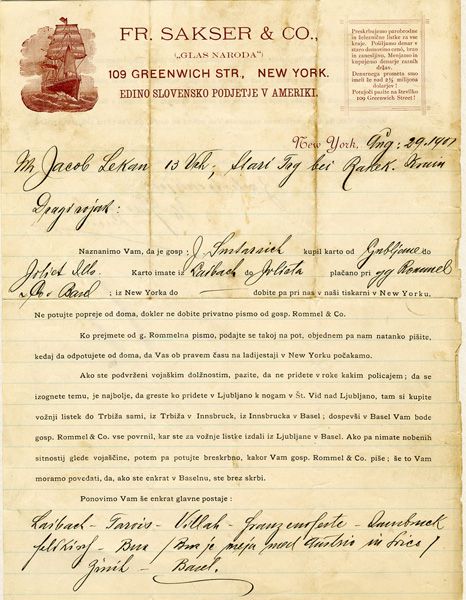 FR. SAKSER & CO.,
("GLAS NARODA")
109 GREENWICH STR., NEW YORK.
EDINO SLOVENSKO PODJETJE V AMERIKI.
Preskrbujemo parobrodne
in železnične listke za vse
kraje. Pošiljamo denar v
staro domovino ceno, brzo
in zanesljivo. Menjamo in
kupujemo denarje raznih
držav.
Denarnega prometa smo
imeli že nad 2½ miljona
dolarjev!
Potujoči pazite na številko
109 Greenwich Street!
New York, Aug: 29. 1901
Mr Jacob Lekan 13 Vrh, Stari Trg bei Rakek. Krain
Dragi rojak:
Naznanimo Vam, da je gosp. J. kupil karto od Ljubljane do
Joliet Ills. Karto imate iz Laibach do Jolieta plačano pri gg Rommel
& Co v Basel; iz New Yorka do dobite pa pri vas v naši tiskarni v New Yorku.
Ne potujte poprej od doma, dokler ne dobite privatno pismo od gosp. Rommel & Co.
Ko prejmete od g. Rommelna pismo, podajte se takoj na pot, objednem pa nam natanko pišite,
kedaj da odpotujete od doma, da Vas ob pravem času na ladijestaji v New Yorku počakamo.
Ako ste podvrženi vojaškim dolžnostim, pazite, da ne pridete v roke kakim policajem; da se
izognete temu, je najbolje, da greste ko pridete v Ljubljano k nogam v Št. Vid nad Ljubljano, tam si kupite
vožnji listek do Trbiža sami, iz Trbiža v Innsbruck, iz Innsbrucka v Basel; dospevši v Basel Vam bode
gosp. Rommel & Co. vse povrnil, kar ste za vožnje listke izdali iz Ljubljane v Basel. Ako pa nimate nobenih
sitnostij glede vojaščine, potem pa potujte breskrbno, kakor Vam gosp. Rommel & Co. piše; še to Vam
moramo povedati, da, ako ste enkrat v Baselnu, ste brez skrbi.
Ponovimo Vam še enkrat glavne postaje:
Laibach – Tarvis – Villah – Franzensfeste – Innsbruck
Feldkirch – Bux / Bux je meja med Austrio in Švico /
Zürich – Basel.